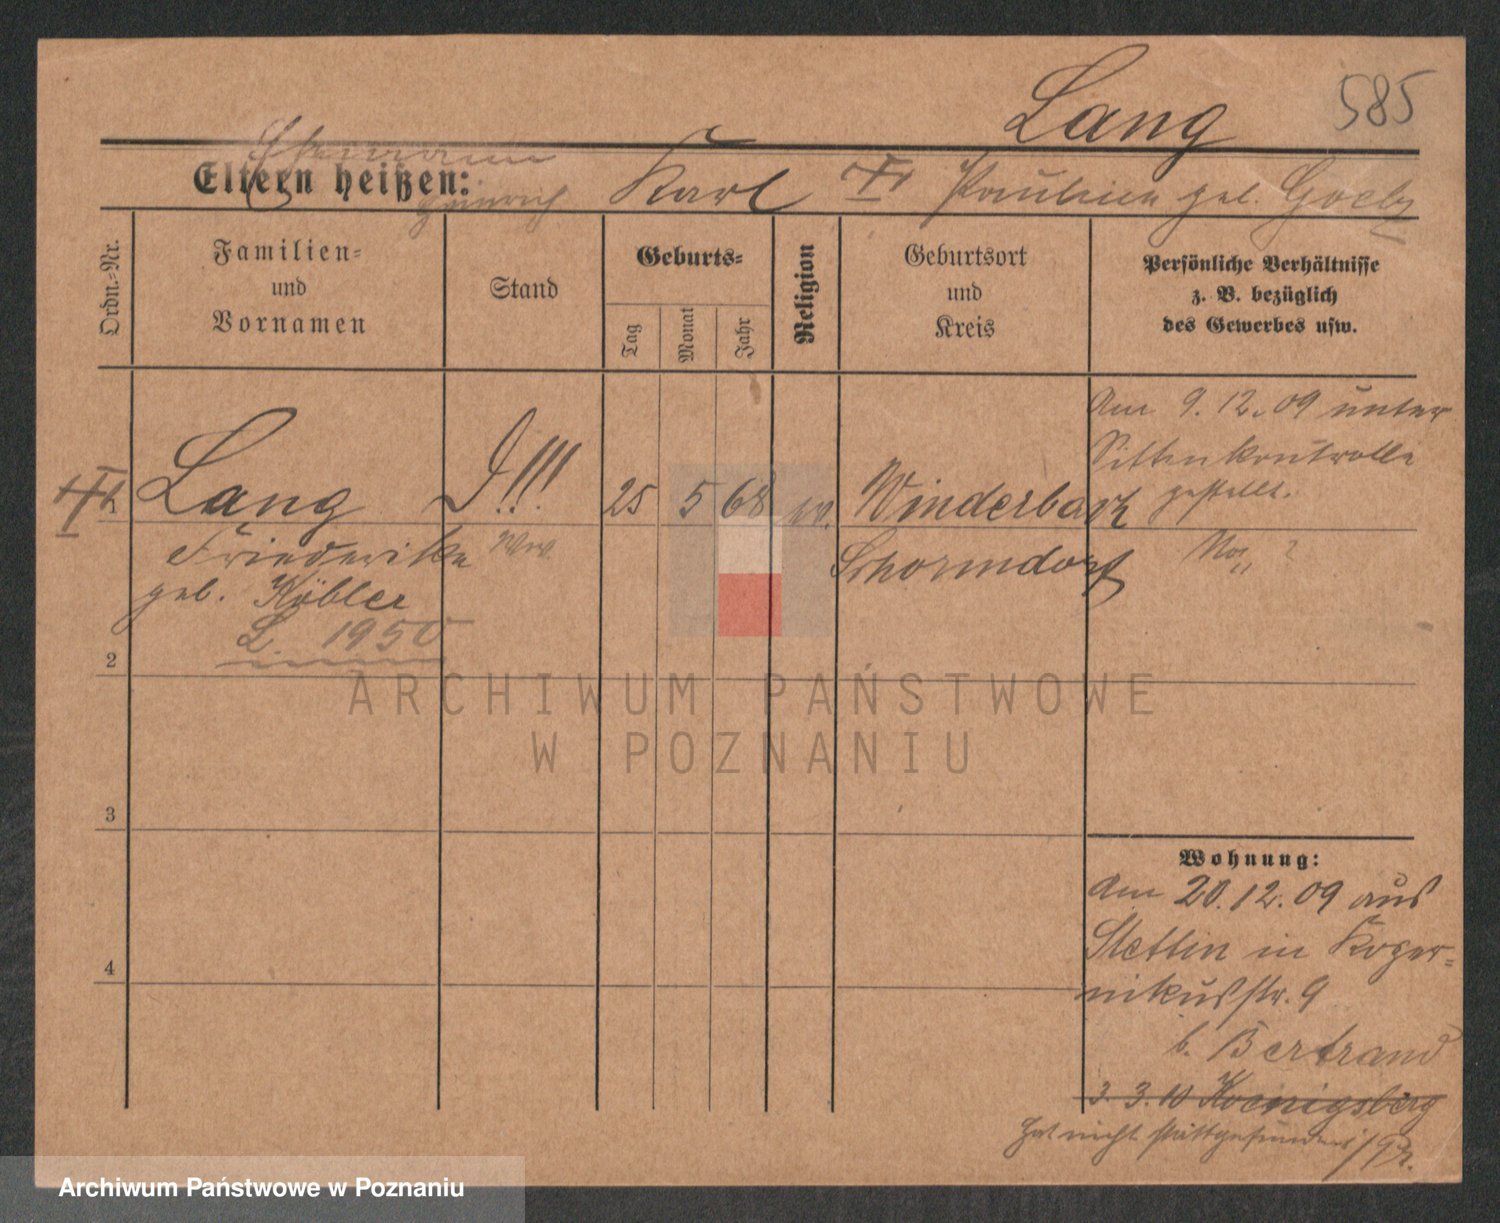 Lang
585
Ehemann
Eltern heißen: Karl Pauline geb. Goelz
Heinrich
Ordn.-Nr.
Familien-
und
Vornamen
Stand
Geburts-
Tag
Monat
Jahr
Religion
Geburtsort
und
Kreis
Persönliche Verhältnisse
z. B. bezüglich
des Gewerbes usw.
Am 9.12.09 unter
Sittenkontrolle
gestellt.
Lang !!! 25 5 68 ev. Winderbach
Friederike Ww. Schorndorf
geb. Köbler
L. 1950
2
ARCHIWUM PAŃSTWOWE
W POZNANIU
3
4
Wohnung:
Am 20.12.09 aus
Stettin in Koper-
nikusstr. 9
b. Bertrand
3. 3.10 Koenigsberg
hat nicht stattgefunden
Archiwum Państwowe w Poznaniu